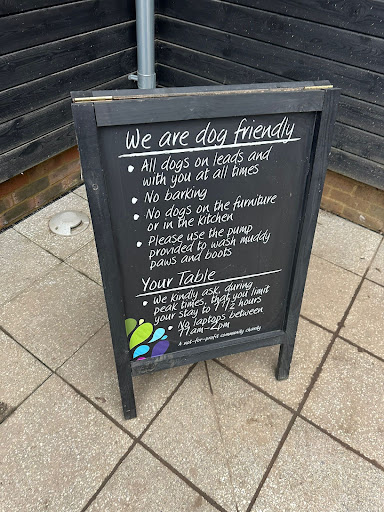 We are dog friendly
• All dogs on leads and
with you at all times
• No barking
• No dogs on the furniture
or in the kitchen
• Please use the pump
provided to wash muddy
paws and boots
Your Table
• We kindly ask, during
peak times, that you limit
your stay to 1 1/2 hours
• No laptops between
11am-2pm
A not-for-profit community charity